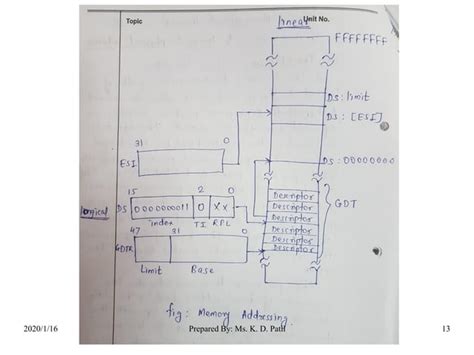 Topic
Linear
Unit No.
FFFFFFFF
DS: limit
DS: [ESI]
31 0
ESI
DS: 00000000
15 2 0
Logical DS 0000000011 0 XX
index TI RPL
47 31 0
GDTR
Limit Base
Descriptor
Descriptor
Descriptor
Descriptor
Descriptor
Descriptor
GDT
fig: Memory Addressing
2020/1/16
Prepared By: Ms. K. D. Patil
13